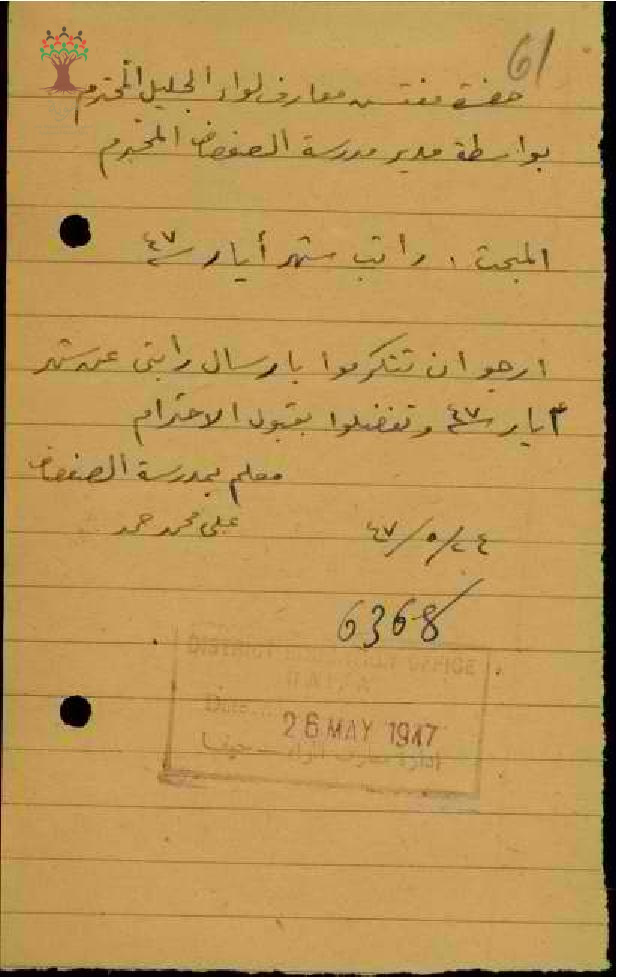 61
حضرة مفتش معارف لواء الجليل المحترم
بواسطة مدير مدرسة الصفصاف المحترم
المبحث : راتب شهر أيار سنة ٤٧
ارجو ان تتكرموا بارسال راتبي عن شهر
أيار سنة ٤٧ وتفضلوا بقبول الاحترام
معلم بمدرسة الصفصاف
علي محمد حمد
٢٤/٥/٤٧
6368
DISTRICT EDUCATION OFFICE
HAIFA
Date
26 MAY 1947
ادارة معارف اللواء - حيفا